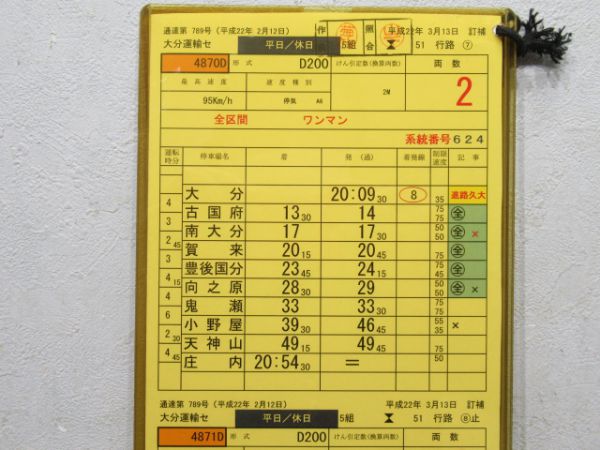 通達第 789号 (平成22年 2月12日) 作 照 平成22年 3月13日 訂補
大分運輸セ 平日/休日 5組 会 51 行路 ⑦
4870D 形式 D200 けん引定数(換算両数) 両数
最高速度 速度種別
95Km/h 停気 A6 2M 2
全区間 ワンマン
系統番号624
運転時分 停車場名 着 発(通) 着発線 制限速度 記事
大分 20:09 30 8 35 進路久大
4 古国府 13 30 14 75 75 全
3 南大分 17 17 30 50 50 全 ×
2 45 賀来 20 15 20 45 75 75 全
3 豊後国分 23 45 24 15 75 45 全
4 15 向之原 28 30 29 50 50 全 ×
4 鬼瀬 33 33 30 75
6 小野屋 39 30 46 45 55 35 ×
2 30 天神山 49 15 49 45 75
4 45 庄内 20:54 30 =
通達第 789号 (平成22年 2月12日) 平成22年 3月13日 訂補
大分運輸セ 平日/休日 5組 51 行路 ⑧止
4871D 形式 D200 けん引定数(換算両数) 両数